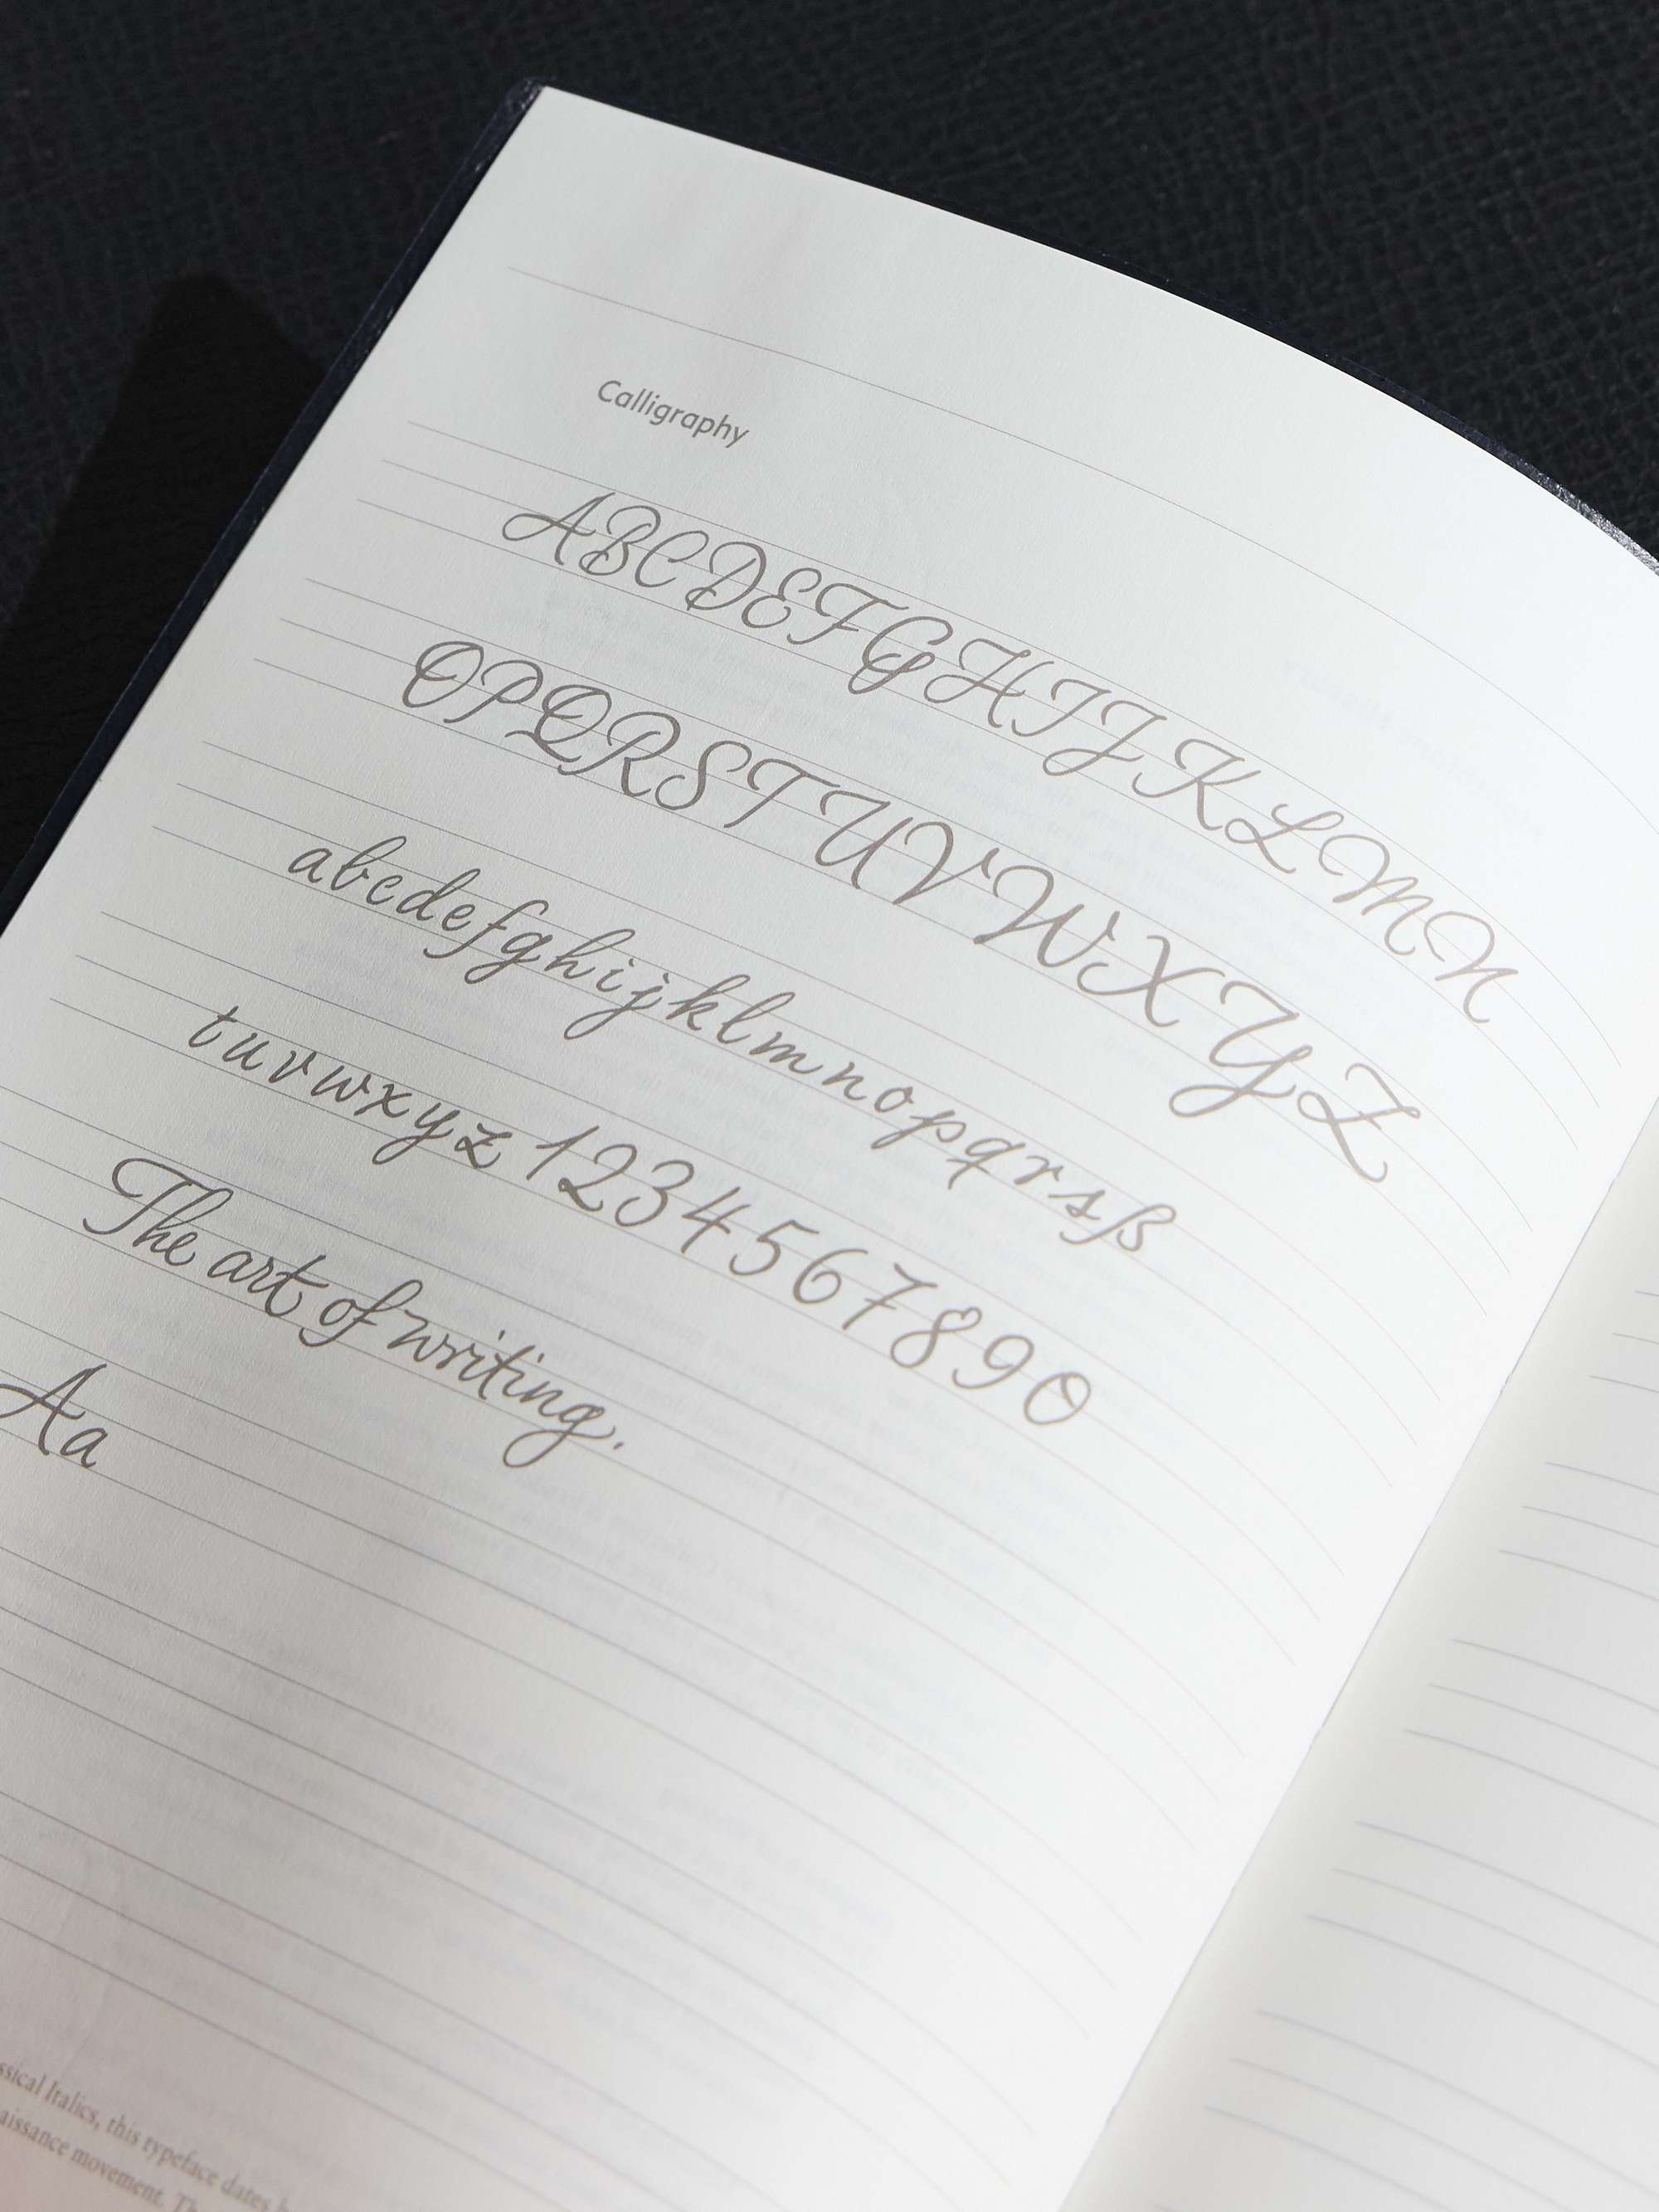 Calligraphy
ABCDEFGHIJKLMN
OPQRSTUVWXYZ
abcdefghijklmnopqrsß
tuvwxyz 1234567890
The art of writing.
Aa
Italics, this typeface dates
movement.